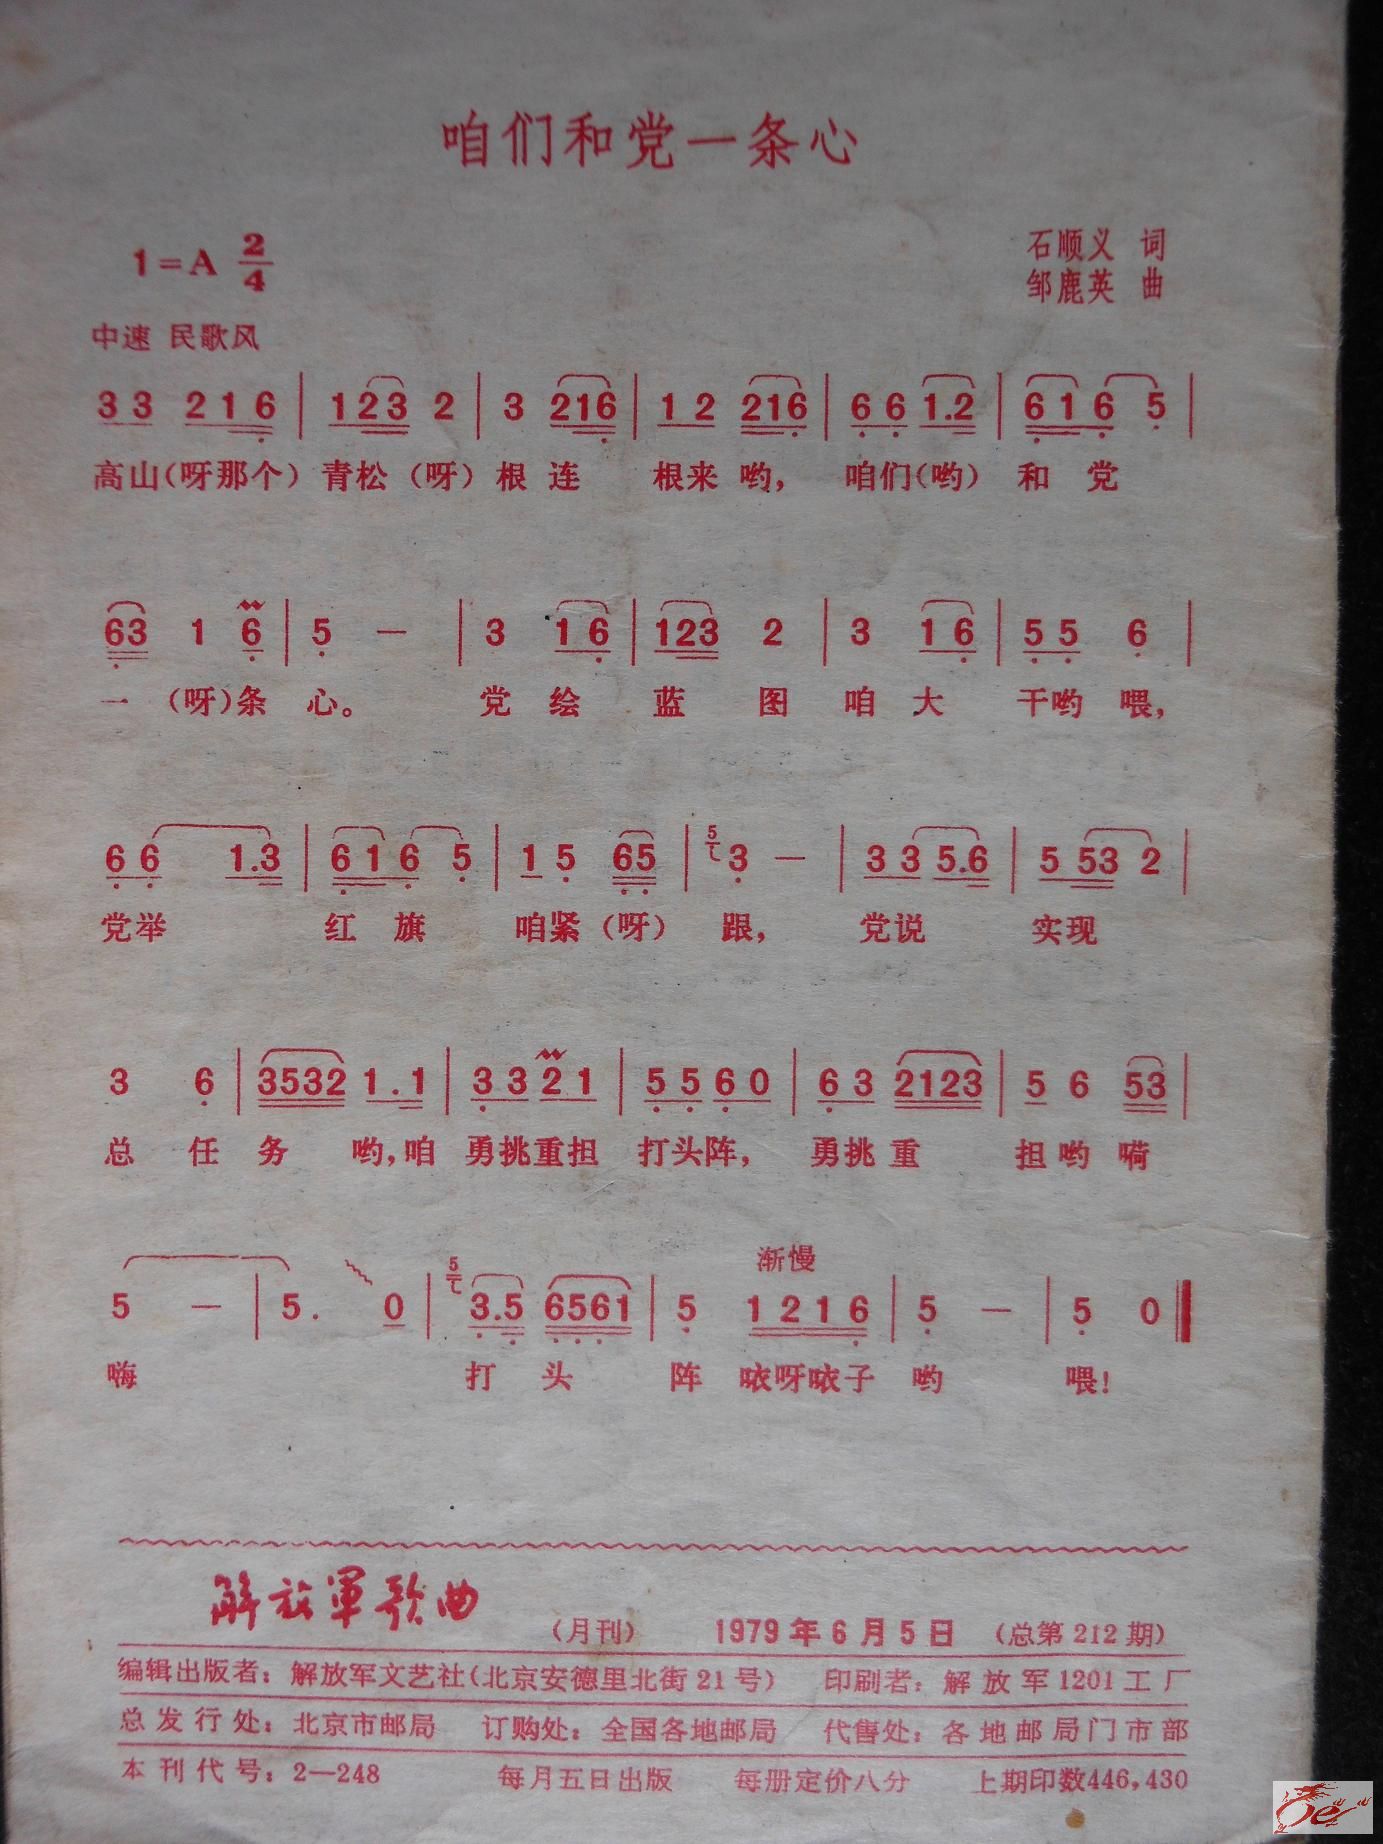 咱们和党一条心
1=A 2/4
石顺义 词
邹鹿英 曲
中速 民歌风
33 216 | 123 2 | 3 216 | 12 216 | 66 1.2 | 616 5 |
高山(呀那个) 青松(呀) 根连 根来哟, 咱们(哟) 和党
63 1 6 | 5 — | 3 16 | 123 2 | 3 16 | 55 6 |
一(呀)条 心。 党绘 蓝图 咱大 干哟喂,
66 1.3 | 616 5 | 15 65 | 5 3 — | 33 5.6 | 553 2 |
党举 红旗 咱紧(呀) 跟, 党说 实现
3 6 | 3532 1.1 | 33 21 | 5560 | 63 2123 | 5 6 53 |
总任务 哟,咱 勇挑重担 打头阵, 勇挑重 担哟嗬
5 — | 5. 0 | 5 3.5 6561 | 5 渐慢 1216 | 5 — | 5 0
嗨 打头 阵 咴呀咴子 哟 喂!
解放军歌曲 (月刊) 1979年6月5日 (总第212期)
编辑出版者: 解放军文艺社(北京安德里北街21号) 印刷者: 解放军1201工厂
总发行处: 北京市邮局 订购处: 全国各地邮局 代售处: 各地邮局门市部
本刊代号: 2—248 每月五日出版 每册定价八分 上期印数446,430